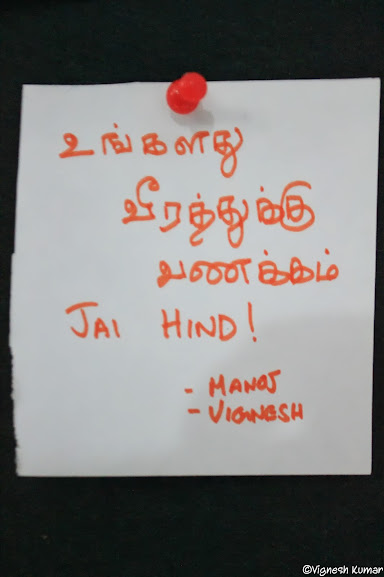 உங்களது
வீரத்துக்கு
வணக்கம்
JAI HIND!
- MANOJ
- VIGNESH
©Vignesh Kumar